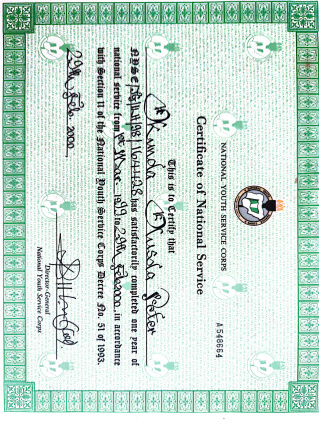 NATIONAL YOUTH SERVICE CORPS
A 548664
Certificate of National Service
This is to Certify that
Peter
has satisfactorily completed one year of
national service from 1st Mar. 1999 to 29th Feb 2000, in accordance
with Section 11 of the National Youth Service Corps Decree No. 51 of 1993.
29th Feb. 2000
Director-General
National Youth Service Corps